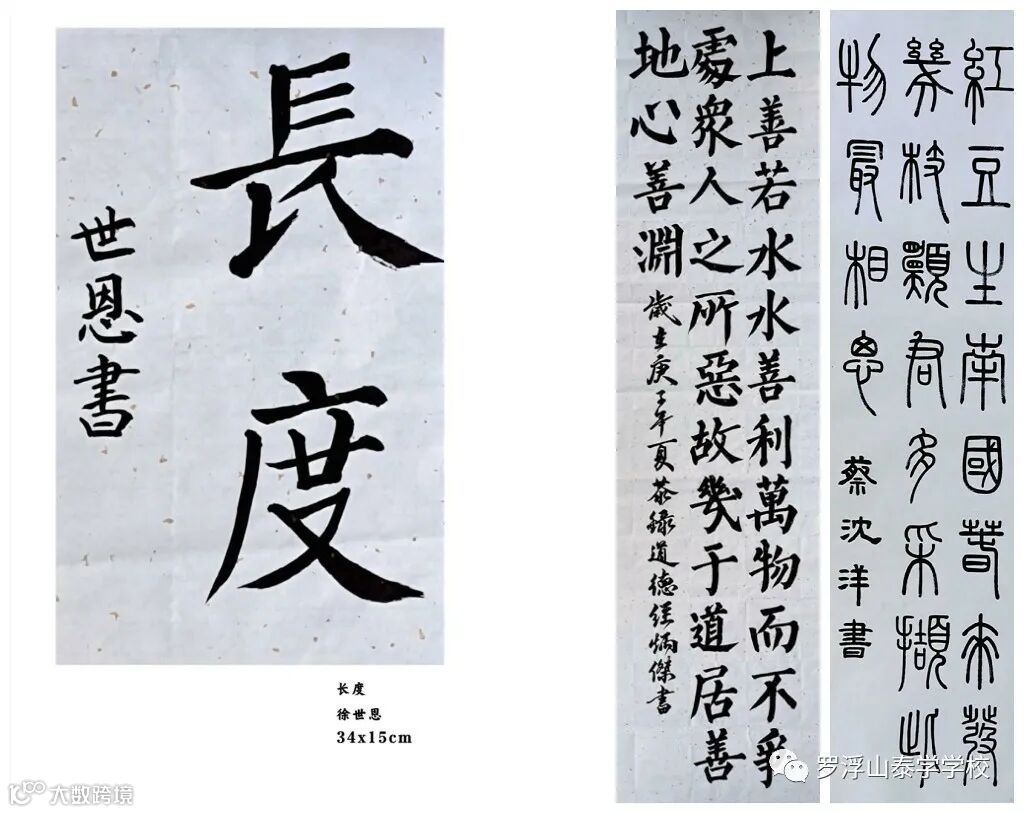 長度
世恩書
长度
徐世恩
34x15cm
上善若水水善利萬物而不爭
處衆人之所惡故幾于道居善
地心善淵
歲在庚子年夏恭錄道德經炳傑書
紅豆生南國春來發
幾枝願君多采擷此
物最相思
蔡沈洋書
罗浮山泰学学校
大数跨境